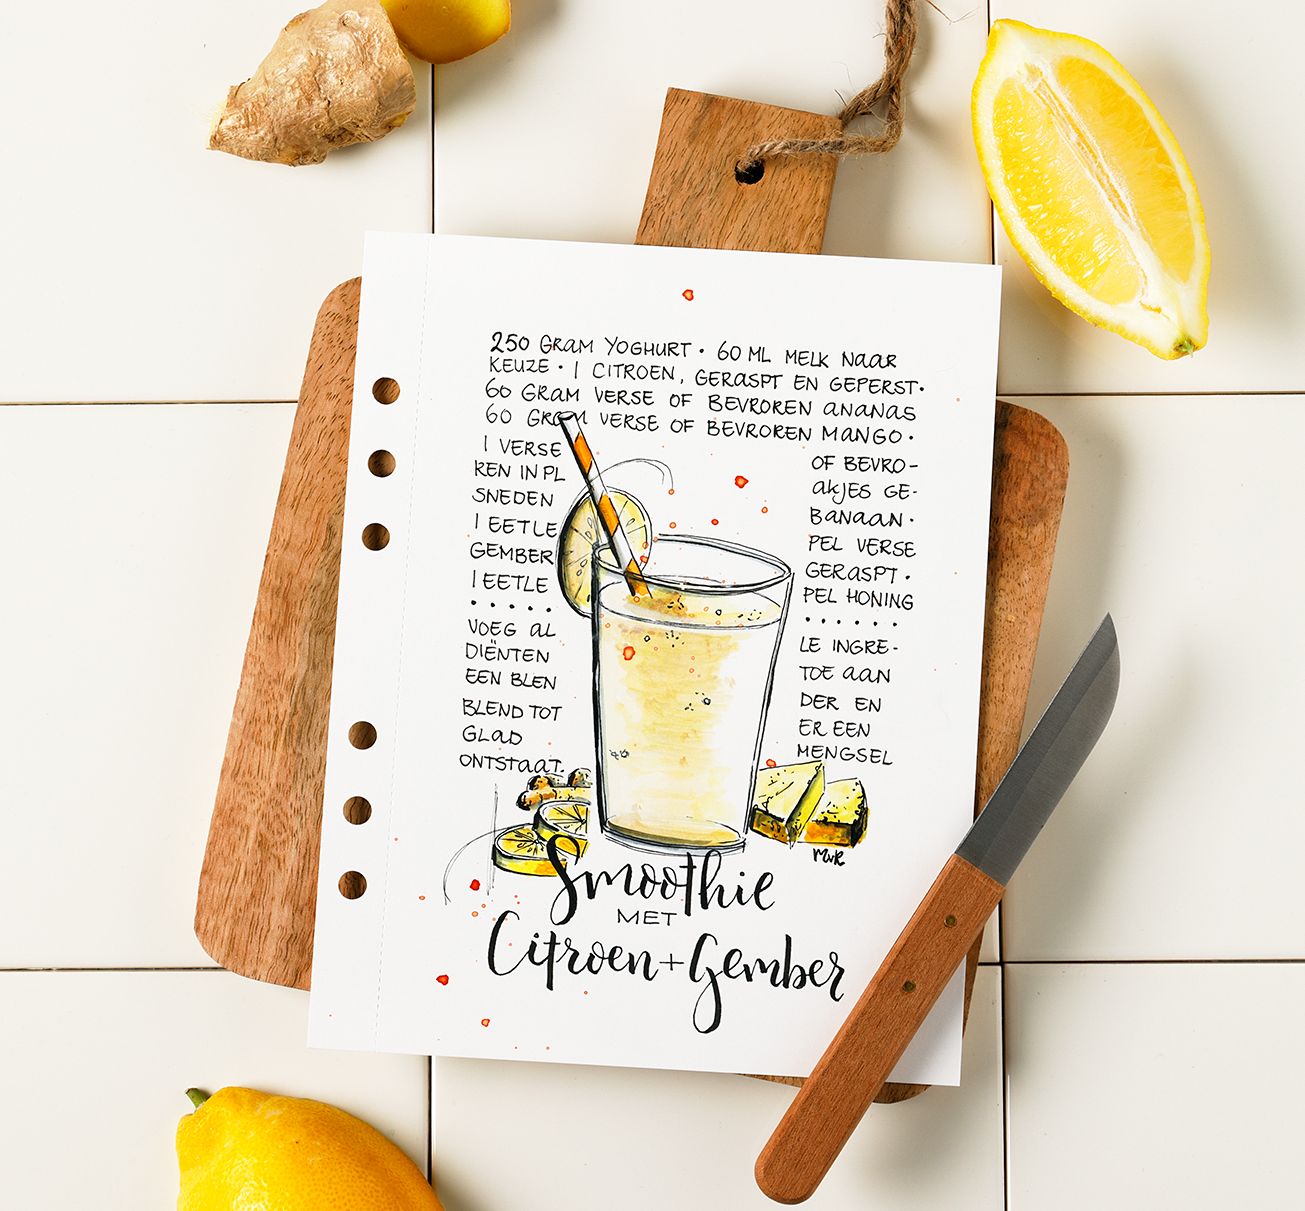 250 GRAM YOGHURT · 60 ML MELK NAAR
KEUZE · 1 CITROEN, GERASPT EN GEPERST ·
60 GRAM VERSE OF BEVROREN ANANAS
60 GRAM VERSE OF BEVROREN MANGO ·
1 VERSE OF BEVRO-
REN IN PL AKJES GE-
SNEDEN BANAAN ·
1 EETLE PEL VERSE
GEMBER GERASPT ·
1 EETLE PEL HONING
VOEG AL LE INGRE-
DIËNTEN TOE AAN
EEN BLEN DER EN
BLEND TOT ER EEN
GLAD MENGSEL
ONTSTAAT.
MvR
Smoothie
MET
Citroen + Gember